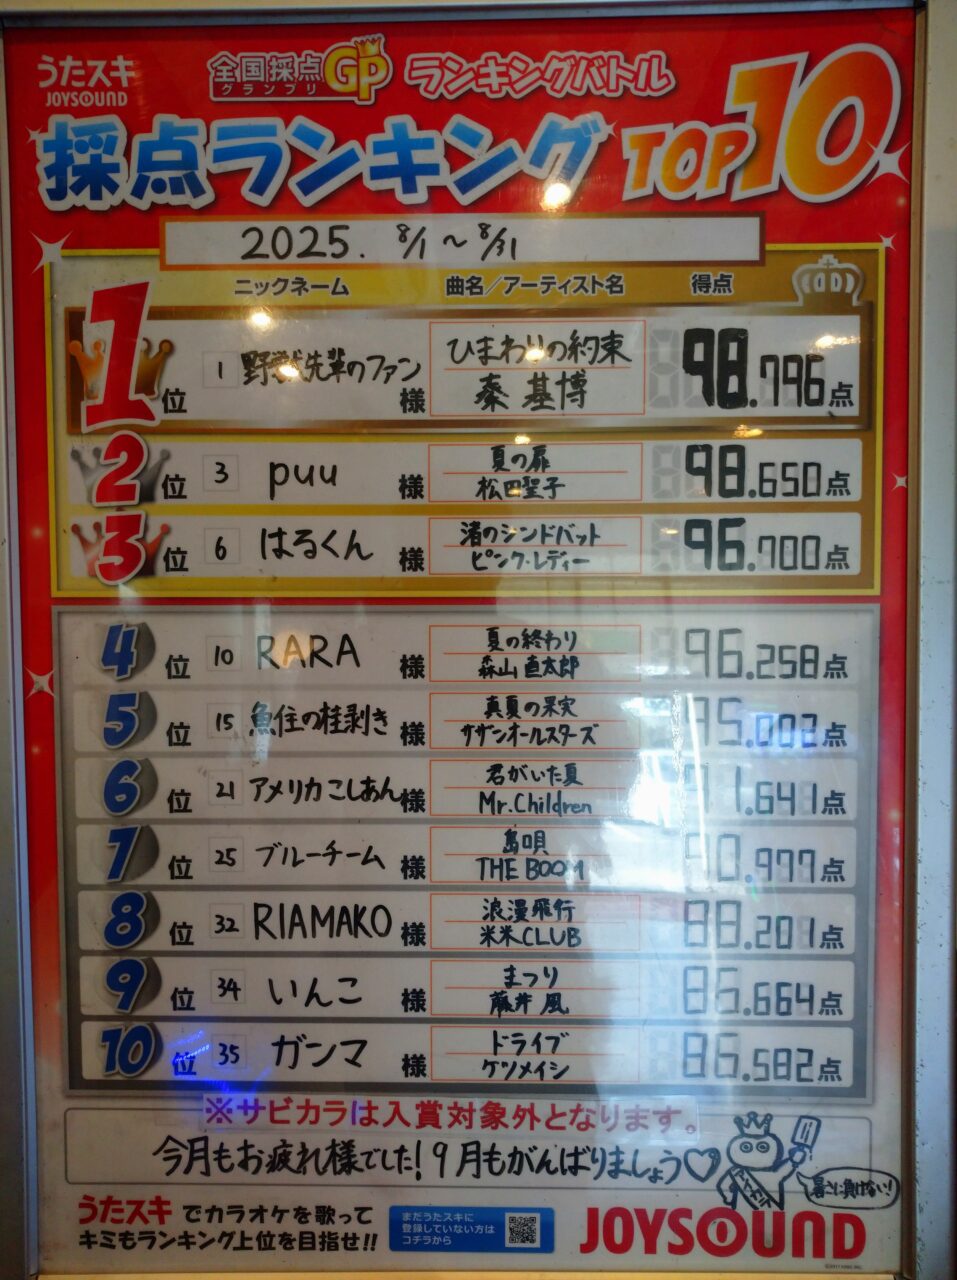 うたスキ
JOYSOUND
全国採点
グランプリ
GP
ランキングバトル
採点ランキング TOP10
2025. 8/1 〜 8/31
ニックネーム 曲名/アーティスト名 得点
1位 1 野獣先輩のファン 様 ひまわりの約束 98.796点
秦 基博
2位 3 puu 様 夏の扉 98.650点
松田聖子
3位 6 はるくん 様 渚のシンドバット 96.700点
ピンク・レディー
4位 10 RARA 様 夏の終わり 96.258点
森山直太郎
5位 15 魚住の桂剥き 様 真夏の果実 95.002点
サザンオールスターズ
6位 21 アメリカこしあん 様 君がいた夏 91.641点
Mr.Children
7位 25 ブルーチーム 様 島唄 90.977点
THE BOOM
8位 32 RIAMAKO 様 浪漫飛行 88.201点
米米CLUB
9位 34 いんこ 様 まつり 86.664点
藤井風
10位 35 ガンマ 様 ドライブ 86.582点
ケツメイシ
※サビカラは入賞対象外となります。
今月もお疲れ様でした!9月もがんばりましょう♡
暑さに負けない!
うたスキ でカラオケを歌って
キミもランキング上位を目指せ!!
まだうたスキに
登録していない方は
コチラから
JOYSOUND